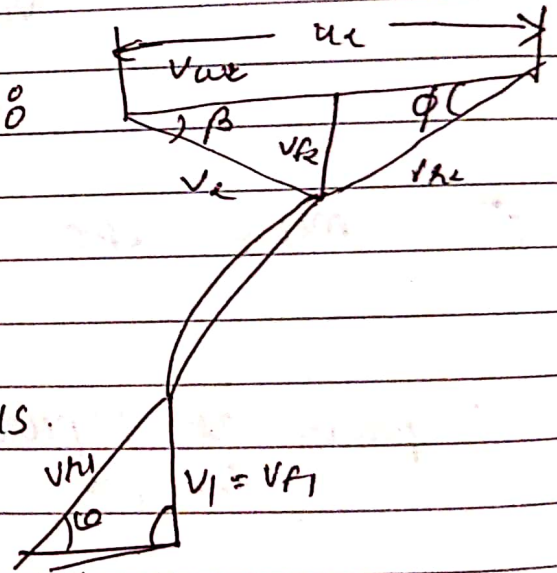 u2
Vw2
:
β
φ
Vf2
V2
Vr2
IS.
Vr1
V1 = Vf1
θ